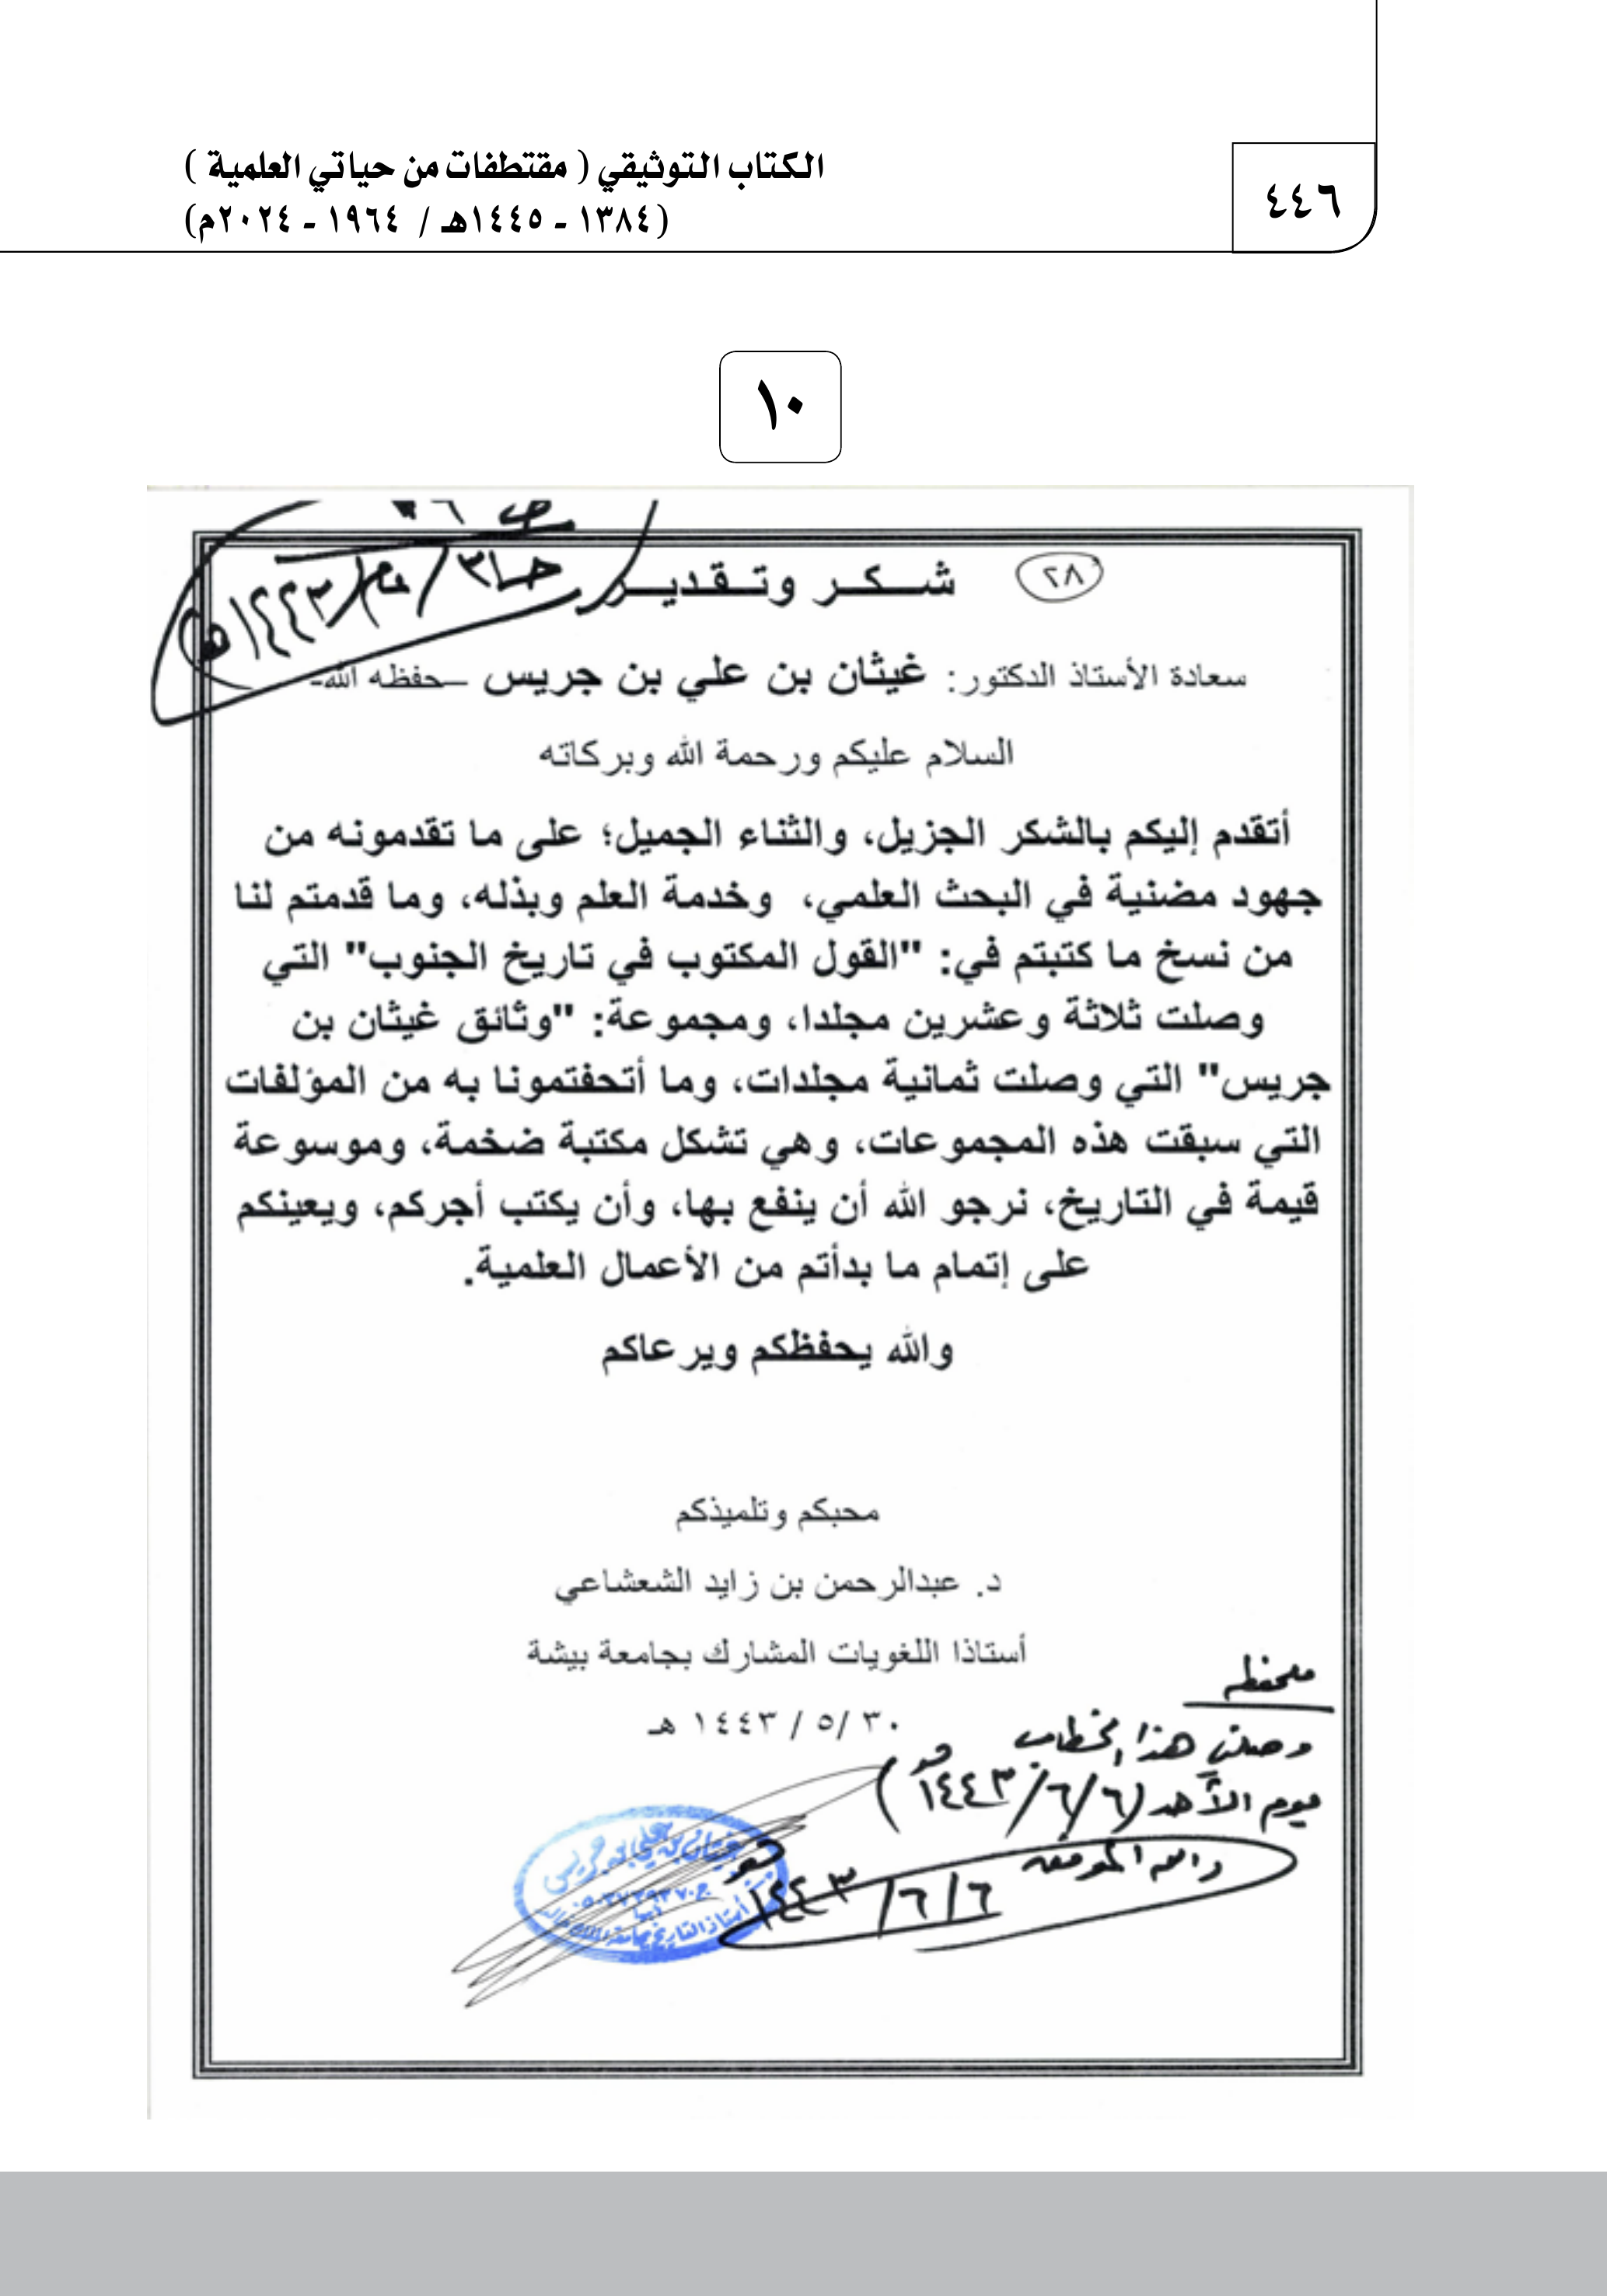 ٤٤٦
الكتاب التوثيقي ( مقتطفات من حياتي العلمية )
(١٣٨٤ - ١٤٤٥هـ / ١٩٦٤ - ٢٠٢٤م)
١٠
٢٨
شكر وتقدير
سعادة الأستاذ الدكتور: غيثان بن علي بن جريس –حفظه الله-
السلام عليكم ورحمة الله وبركاته
أتقدم إليكم بالشكر الجزيل، والثناء الجميل؛ على ما تقدمونه من
جهود مضنية في البحث العلمي، وخدمة العلم وبذله، وما قدمتم لنا
من نسخ ما كتبتم في: "القول المكتوب في تاريخ الجنوب" التي
وصلت ثلاثة وعشرين مجلدا، ومجموعة: "وثائق غيثان بن
جريس" التي وصلت ثمانية مجلدات، وما أتحفتمونا به من المؤلفات
التي سبقت هذه المجموعات، وهي تشكل مكتبة ضخمة، وموسوعة
قيمة في التاريخ، نرجو الله أن ينفع بها، وأن يكتب أجركم، ويعينكم
على إتمام ما بدأتم من الأعمال العلمية.
والله يحفظكم ويرعاكم
محبكم وتلميذكم
د. عبدالرحمن بن زايد الشعشاعي
أستاذا اللغويات المشارك بجامعة بيشة
٣٠ /٥ / ١٤٤٣ هـ
ملحظه
وصلني هذا الخطاب
يوم الأحد (٦/٦/١٤٤٣هـ)
والله الموفق
٦/٦/١٤٤٣هـ
غيثان بن علي بن جريس